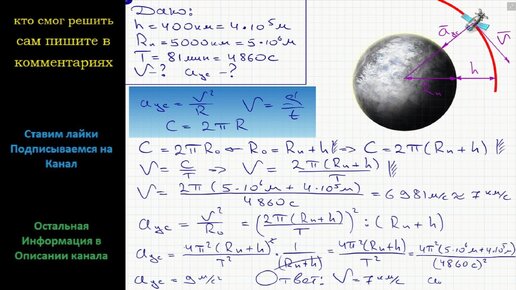 кто смог решить
сам пишите в
комментариях
Ставим лайки
Подписываемся на
Канал
Остальная
Информация в
Описании канала
Дано:
h = 400км = 4·10⁵м
Rп = 5000км = 5·10⁶м
T = 81мин = 4860с
V-? aцс -?
aцс = V²/R V = S/t
C = 2πR
aцс V
Rп h
C = 2πR₀ ← R₀ = Rп + h ⇒ C = 2π(Rп + h)
V = C/T ⇒ V = 2π(Rп + h)/T
V = 2π(5·10⁶м + 4·10⁵м)/4860с = 6981м/с ≈ 7км/с
aцс = V²/R₀ = (2π(Rп + h)/T)² : (Rп + h)
aцс = 4π²(Rп + h)²/T² · 1/(Rп + h) = 4π²(Rп + h)/T² = 4π²(5·10⁶м + 4·10⁵м)/(4860с)²
aцс = 9м/с² Ответ: V = 7км/с